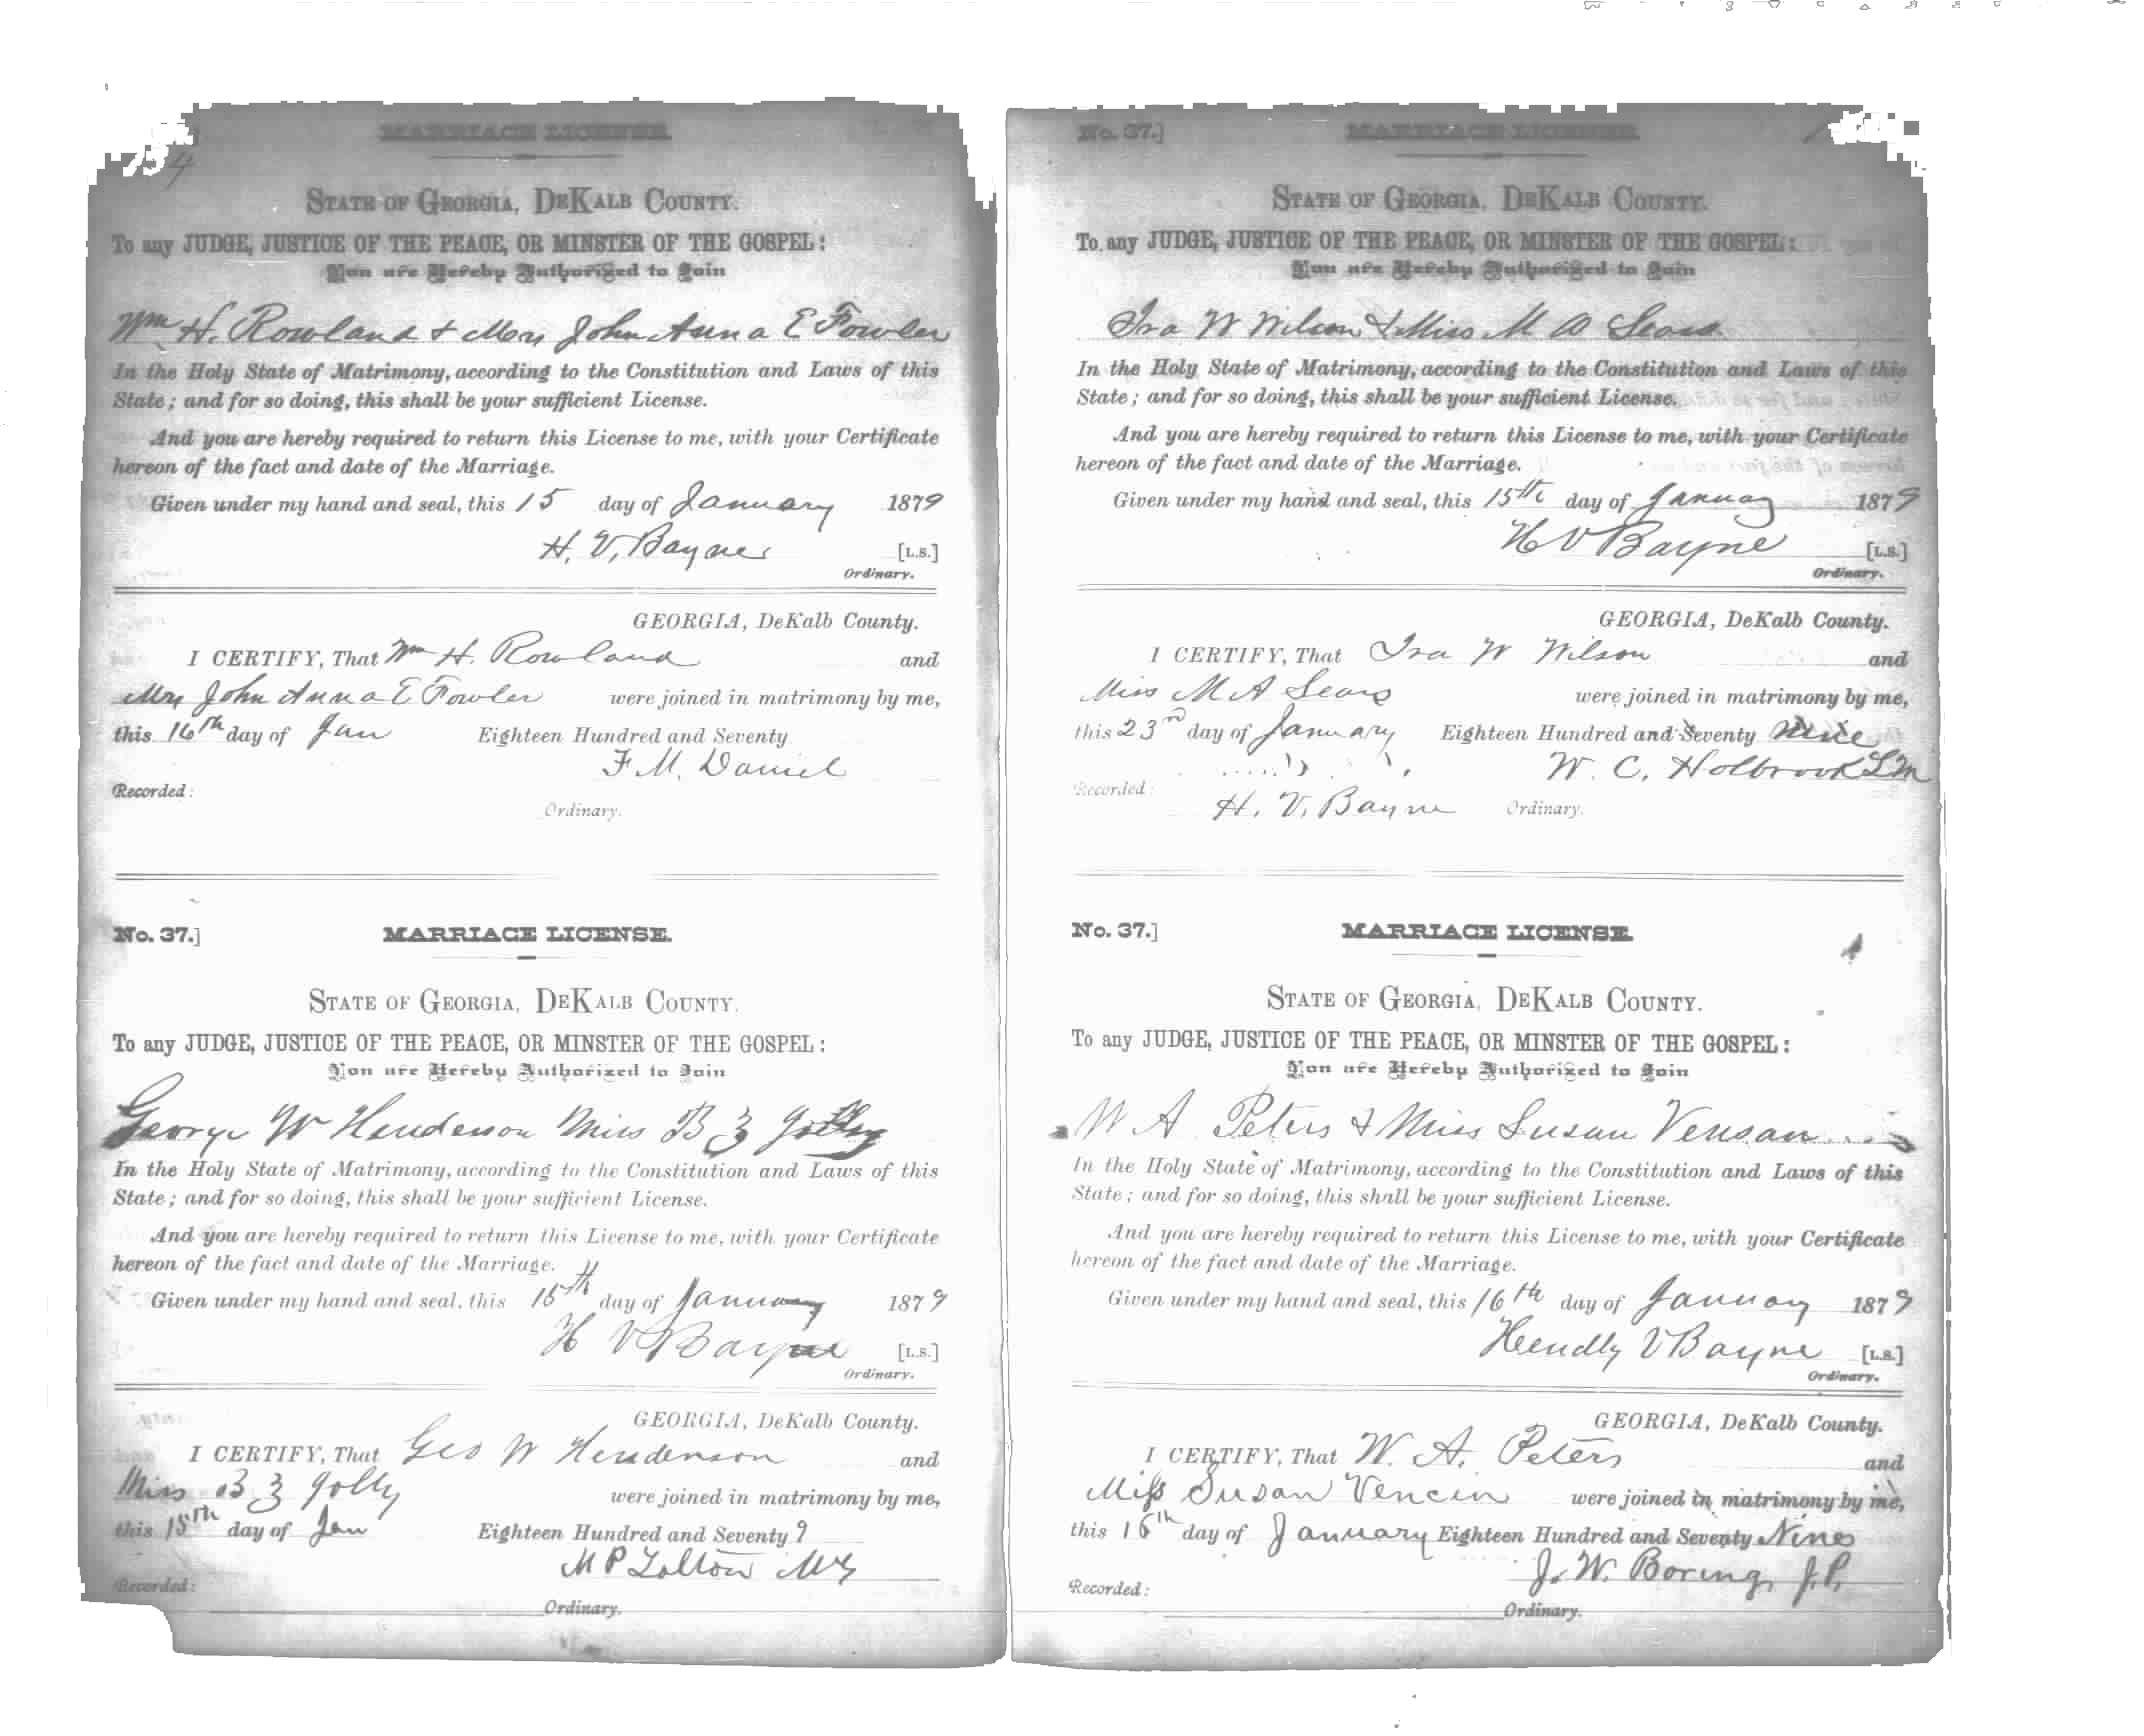 154
MARRIAGE LICENSE.
STATE OF GEORGIA, DEKALB COUNTY.
To any JUDGE, JUSTICE OF THE PEACE, OR MINSTER OF THE GOSPEL:
You are Hereby Authorized to Join
Wm H. Rowland & Mrs John Anna E Fowler
In the Holy State of Matrimony, according to the Constitution and Laws of this
State; and for so doing, this shall be your sufficient License.
And you are hereby required to return this License to me, with your Certificate
hereon of the fact and date of the Marriage.
Given under my hand and seal, this 15 day of January 1879
H. V. Bayne [L.S.]
Ordinary.
GEORGIA, DeKalb County.
I CERTIFY, That Wm H. Rowland and
Mrs John Anna E Fowler were joined in matrimony by me,
this 16th day of Jan Eighteen Hundred and Seventy
F. M. Daniel
Recorded:
Ordinary.
No. 37.]
MARRIAGE LICENSE.
STATE OF GEORGIA, DEKALB COUNTY.
To any JUDGE, JUSTICE OF THE PEACE, OR MINSTER OF THE GOSPEL:
You are Hereby Authorized to Join
George W Henderson Miss B Z Jolly
In the Holy State of Matrimony, according to the Constitution and Laws of this
State; and for so doing, this shall be your sufficient License.
And you are hereby required to return this License to me, with your Certificate
hereon of the fact and date of the Marriage.
Given under my hand and seal, this 15th day of January 1879
H V Bayne [L.S.]
Ordinary.
GEORGIA, DeKalb County.
I CERTIFY, That Geo W Henderson and
Miss B Z Jolly were joined in matrimony by me,
this 15th day of Jan Eighteen Hundred and Seventy 9
M P Tolton MG
Recorded:
Ordinary.
No. 37.]
MARRIAGE LICENSE.
STATE OF GEORGIA, DEKALB COUNTY.
To any JUDGE, JUSTICE OF THE PEACE, OR MINSTER OF THE GOSPEL:
You are Hereby Authorized to Join
Ira W Wilson & Miss M A Sears
In the Holy State of Matrimony, according to the Constitution and Laws of this
State; and for so doing, this shall be your sufficient License.
And you are hereby required to return this License to me, with your Certificate
hereon of the fact and date of the Marriage.
Given under my hand and seal, this 15th day of January 1879
H V Bayne [L.S.]
Ordinary.
GEORGIA, DeKalb County.
I CERTIFY, That Ira W Wilson and
Miss M A Sears were joined in matrimony by me,
this 23rd day of January Eighteen Hundred and Seventy Nine
W. C. Holbrook LM
Recorded:
H. V. Bayne Ordinary.
No. 37.]
MARRIAGE LICENSE.
STATE OF GEORGIA, DEKALB COUNTY.
To any JUDGE, JUSTICE OF THE PEACE, OR MINSTER OF THE GOSPEL:
You are Hereby Authorized to Join
W A Peters & Miss Susan Venson
In the Holy State of Matrimony, according to the Constitution and Laws of this
State; and for so doing, this shall be your sufficient License.
And you are hereby required to return this License to me, with your Certificate
hereon of the fact and date of the Marriage.
Given under my hand and seal, this 16th day of January 1879
Hendly V Bayne [L.S.]
Ordinary.
GEORGIA, DeKalb County.
I CERTIFY, That W. A. Peters and
Miss Susan Vencin were joined in matrimony by me,
this 16th day of January Eighteen Hundred and Seventy Nine
J. W. Boring, J.P.
Recorded:
Ordinary.